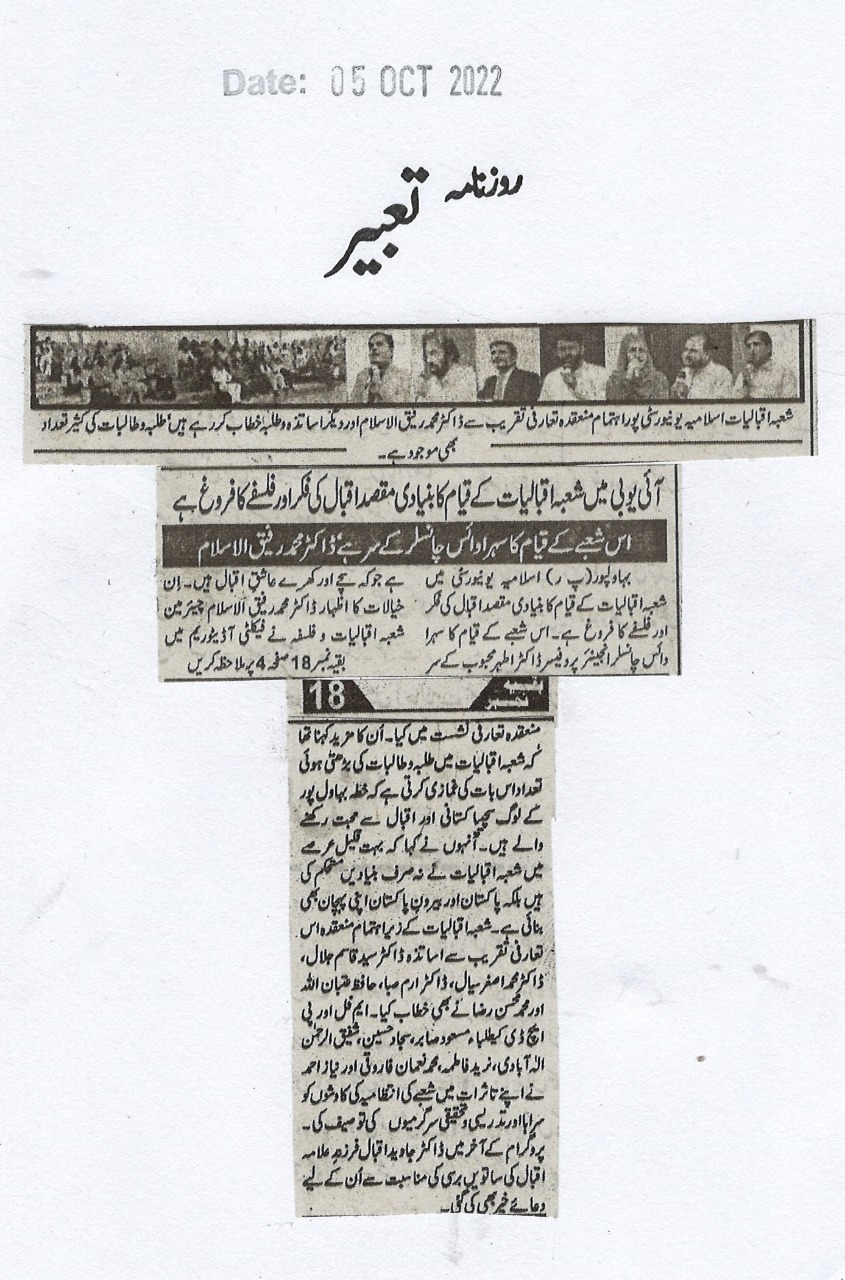 Date: 05 OCT 2022
روزنامہ تعبیر
شعبہ اقبالیات اسلامیہ یونیورسٹی پور اہتمام منعقدہ تعارفی تقریب سے ڈاکٹر محمد رفیق الاسلام اور دیگر اساتذہ و طلبہ خطاب کر رہے ہیں، طلبہ و طالبات کی کثیر تعداد
بھی موجود ہے۔
آئی یو بی میں شعبہ اقبالیات کے قیام کا بنیادی مقصد اقبال کی فکر اور فلسفے کا فروغ ہے
اس شعبے کے قیام کا سہرا وائس چانسلر کے سر ہے، ڈاکٹر محمد رفیق الاسلام
بہاولپور (پ ر) اسلامیہ یونیورسٹی میں
شعبہ اقبالیات کے قیام کا بنیادی مقصد اقبال کی فکر
اور فلسفے کا فروغ ہے۔ اس شعبے کے قیام کا سہرا
وائس چانسلر انجینئر پروفیسر ڈاکٹر اطہر محبوب کے سر
ہے جو کہ سچے اور کھرے عاشقِ اقبال ہیں۔ اِن
خیالات کا اظہار ڈاکٹر محمد رفیق الاسلام چیئرمین
شعبہ اقبالیات و فلسفہ نے فیکلٹی آڈیٹوریم میں
بقیہ نمبر 18 صفحہ 4 پر ملاحظہ کریں
بقیہ نمبر 18
منعقدہ تعارفی نشست میں کیا۔ اُن کا مزید کہنا تھا
کہ شعبہ اقبالیات میں طلبہ و طالبات کی بڑھتی ہوئی
تعداد اس بات کی غمازی کرتی ہے کہ خطہ بہاول پور
کے لوگ سچا پاکستانی اور اقبال سے محبت رکھنے
والے ہیں۔ اُنہوں نے کہا کہ بہت قلیل عرصے
میں شعبہ اقبالیات نے نہ صرف بنیادیں مستحکم کی
ہیں بلکہ پاکستان اور بیرون پاکستان اپنی پہچان بھی
بنائی ہے۔ شعبہ اقبالیات کے زیر اہتمام منعقدہ اس
تعارفی تقریب سے اساتذہ ڈاکٹر سید قاسم جلال،
ڈاکٹر محمد اصغر سیال، ڈاکٹر ارم صبا، حافظ اللہ
اور محمد محسن رضا نے بھی خطاب کیا۔ ایم فل اور پی
ایچ ڈی کے طلباء مسعود صابر، سجاد حسین، شفیق الرحمٰن
الہ آبادی، فاطمہ، محمد نعمان فاروقی اور نیاز احمد
نے اپنے تاثرات میں شعبے کی انتظامیہ کی کاوشوں کو
سراہا اور تدریسی و تحقیقی سرگرمیوں کی توصیف کی۔
پروگرام کے آخر میں ڈاکٹر جاوید اقبال فرزندِ علامہ
اقبال کی ساتویں برسی کی مناسبت سے اُن کے لیے
دعائے خیر بھی کی گئی۔